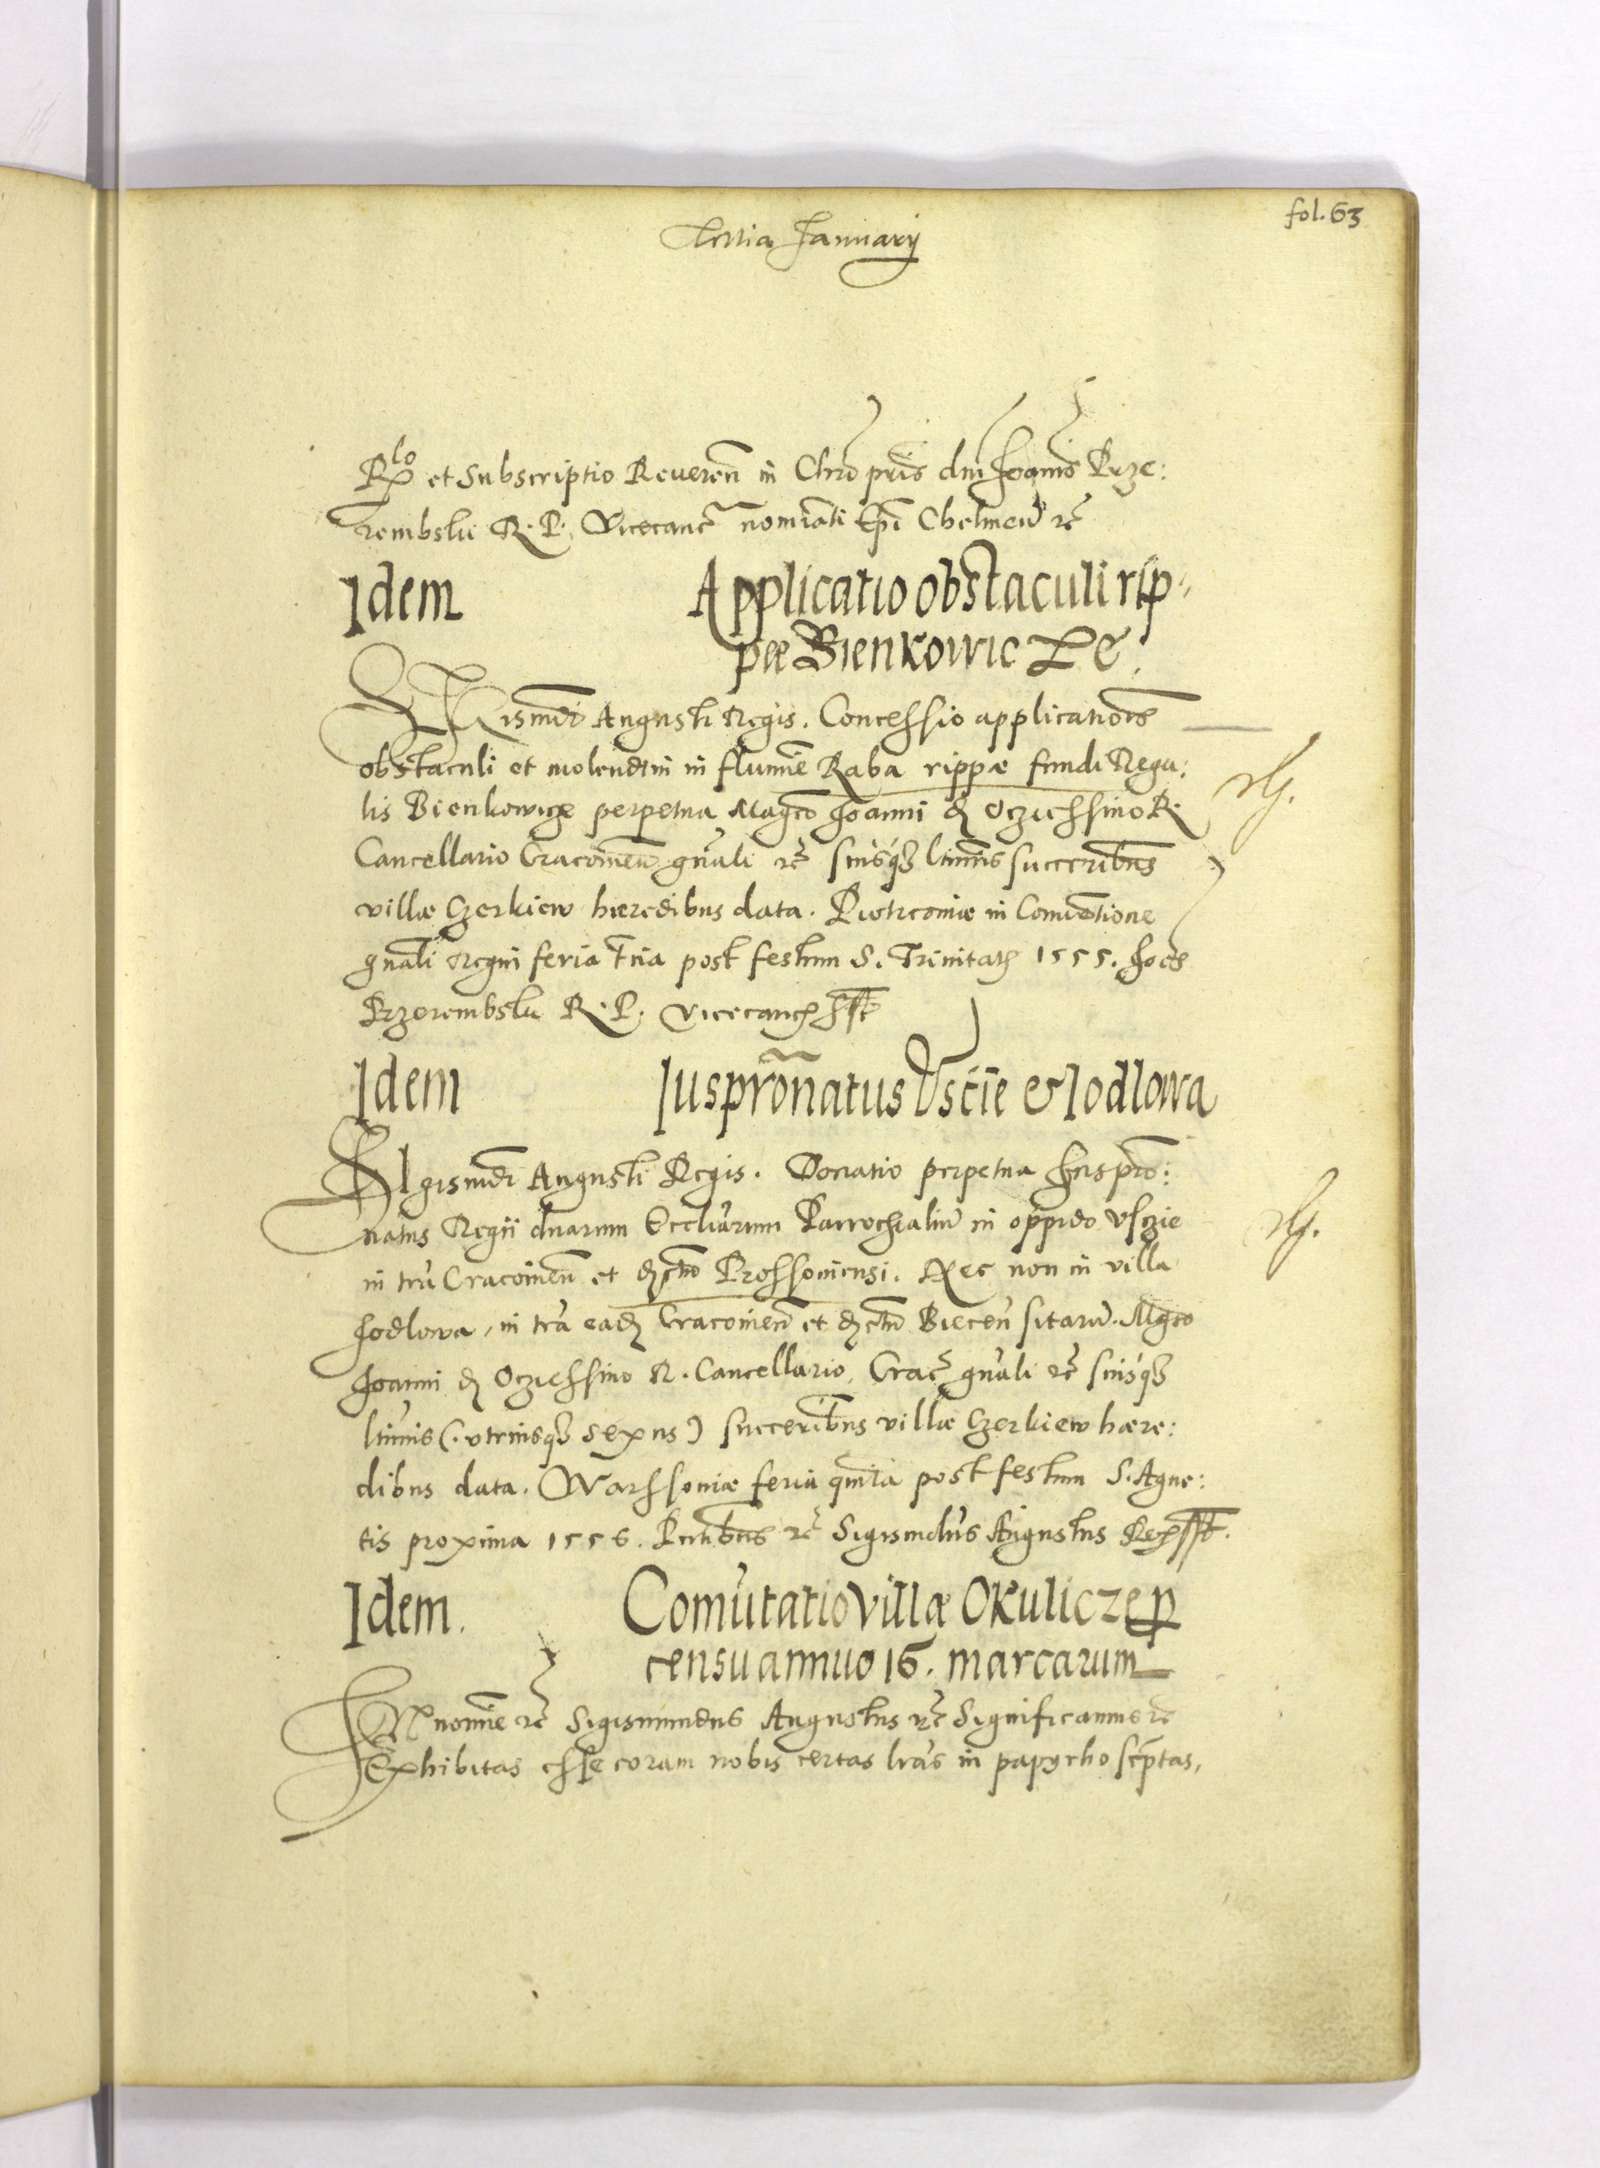 fol. 63
Tertia Januarij
Rlo et Subscriptio Reueren in Chro pris dni Joanis Prze:
rembski R. P. Vicecanc nominati Epi Chelmen etc
Idem Applicatio obstaculi rip-
pæ Bienkowicze.
Sigismdi Augusti Regis. Concessio applicationis
obstaculi et molendini in flumine Raba rippæ fundi Rega:
lis Bienkowicze perpetua Magco Joanni de Ocziessino R.
Cancellario Cracouien gnali etc suisq ltimis succeribus
villæ Czerkiew hæredibus data. Piotrcouiæ in Conuentione
gnali Regni feria tertia post festum S. Trinitatis 1555. Joes
Przerembski R. P. Vicecanc sst
Idem Juspronatus Uscie et Jodlowa
Sigismdi Augusti Regis. Donatio perpetua Juspro:
natus Regii duarum Eccliarum Parrochialiu in oppido Usczie
in tra Cracouien et dictu Prossouiensi. Nec non in villa
Jodlowa, in tra eadem Cracouien et dictu Biecen sitaru. Mgco
Joanni de Ocziessino R. Cancellario, Crac gnali etc suisq
ltimis (utriusq sexus) succeribus villæ Czerkiew hære:
dibus data. Warssouiæ feria quinta post festum S. Agne:
tis proxima 1556. Pntibus etc Sigismdus Augustus Rex sst.
Idem. Comutatio villæ Okulicze p
censu annuo 16. marcarum
In nomine etc Sigismundus Augustus etc Significamus etc
Exhibitas esse coram nobis certas lras in papyrho scptas,